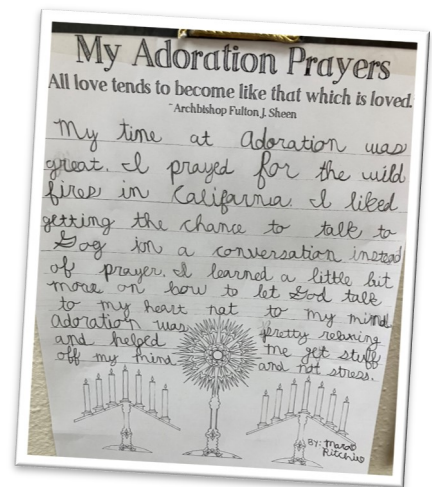 My Adoration Prayers
All love tends to become like that which is loved.
~Archbishop Fulton J. Sheen
My time at Adoration was
great. I prayed for the wild
fires in Califarna. I liked
getting the chance to talk to
Gog in a conversation instead
of prayer. I learned a little bit
more on how to let God talk
to my heart not to my mind.
adoration was pretty relaxing
and helped me get stuff
off my mind and not stress.
BY:
Ritchie